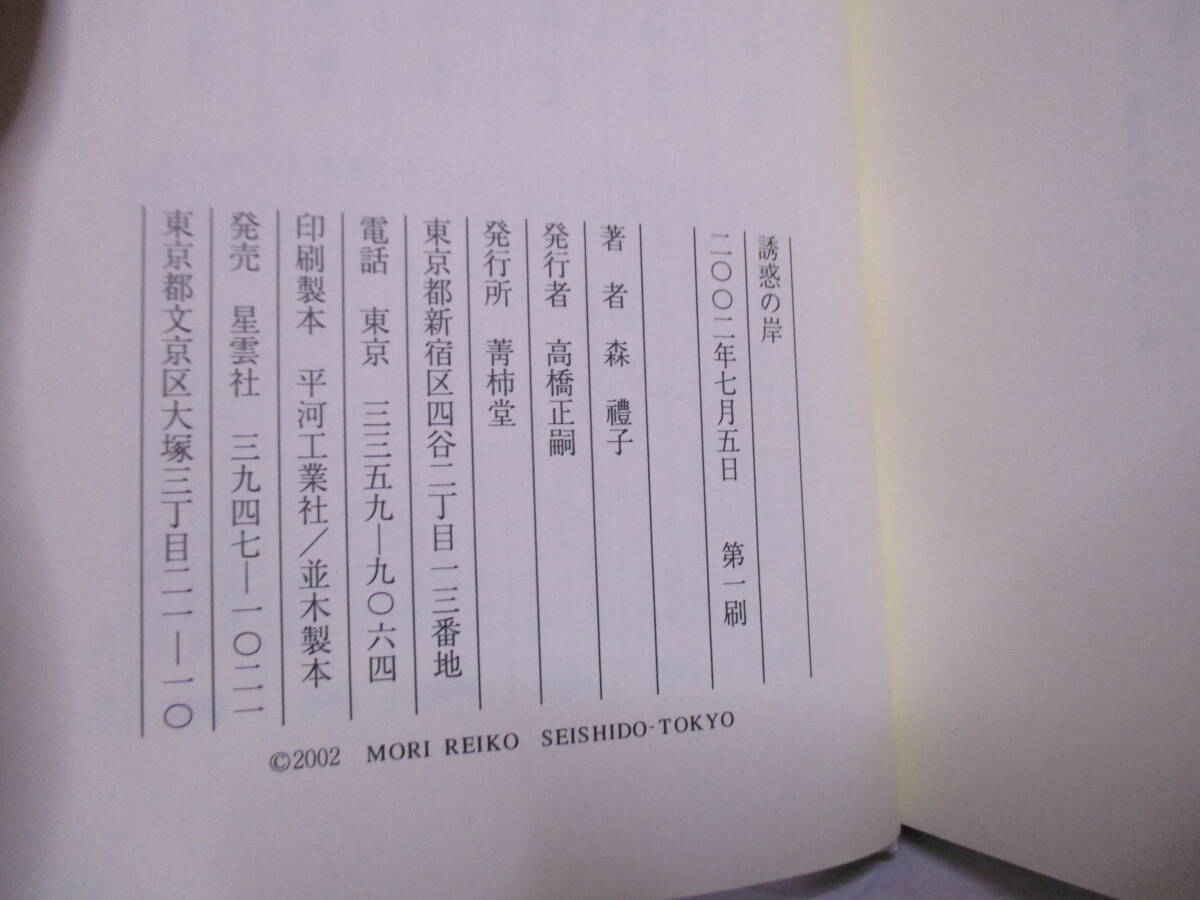 誘惑の岸
二〇〇二年七月五日　第一刷
著者　森　禮子
発行者　高橋正嗣
発行所　菁柿堂
東京都新宿区四谷二丁目一三番地
電話　東京　三三五九―九〇六四
印刷製本　平河工業社/並木製本
発売　星雲社　三九四七―一〇二一
東京都文京区大塚三丁目二一―一〇
©2002 MORI REIKO SEISHIDO-TOKYO